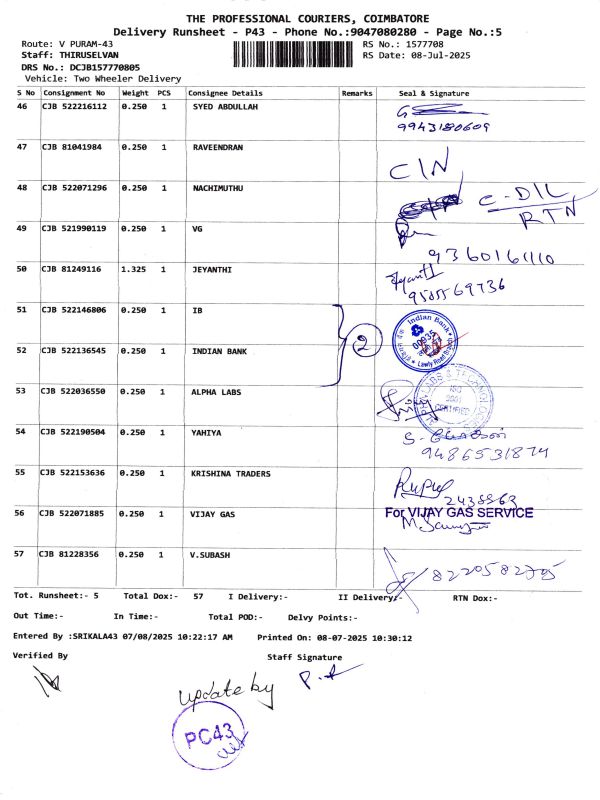 THE PROFESSIONAL COURIERS, COIMBATORE
Delivery Runsheet - P43 - Phone No.:9047080280 - Page No.:5
Route: V PURAM-43 RS No.: 1577708
Staff: THIRUSELVAN RS Date: 08-Jul-2025
DRS No.: DCJB157770805
Vehicle: Two Wheeler Delivery
S No Consignment No Weight PCS Consignee Details Remarks Seal & Signature
46 CJB 522216112 0.250 1 SYED ABDULLAH
9943180609
47 CJB 81041984 0.250 1 RAVEENDRAN
C/N
48 CJB 522071296 0.250 1 NACHIMUTHU
C-DIL
RTN
49 CJB 521990119 0.250 1 VG
9360161110
50 CJB 81249116 1.325 1 JEYANTHI
Jeyanthi
9585569736
51 CJB 522146806 0.250 1 IB
2
Indian Bank
00935
52 CJB 522136545 0.250 1 INDIAN BANK
Lawly Road Branch
53 CJB 522036550 0.250 1 ALPHA LABS
ISO
CERTIFIED
54 CJB 522190504 0.250 1 YAHIYA
9486531874
55 CJB 522153636 0.250 1 KRISHINA TRADERS
2438863
56 CJB 522071885 0.250 1 VIJAY GAS For VIJAY GAS SERVICE
57 CJB 81228356 0.250 1 V.SUBASH
8220582705
Tot. Runsheet:- 5 Total Dox:- 57 I Delivery:- II Delivery:- RTN Dox:-
Out Time:- In Time:- Total POD:- Delvy Points:-
Entered By :SRIKALA43 07/08/2025 10:22:17 AM Printed On: 08-07-2025 10:30:12
Verified By Staff Signature
update by
PC43